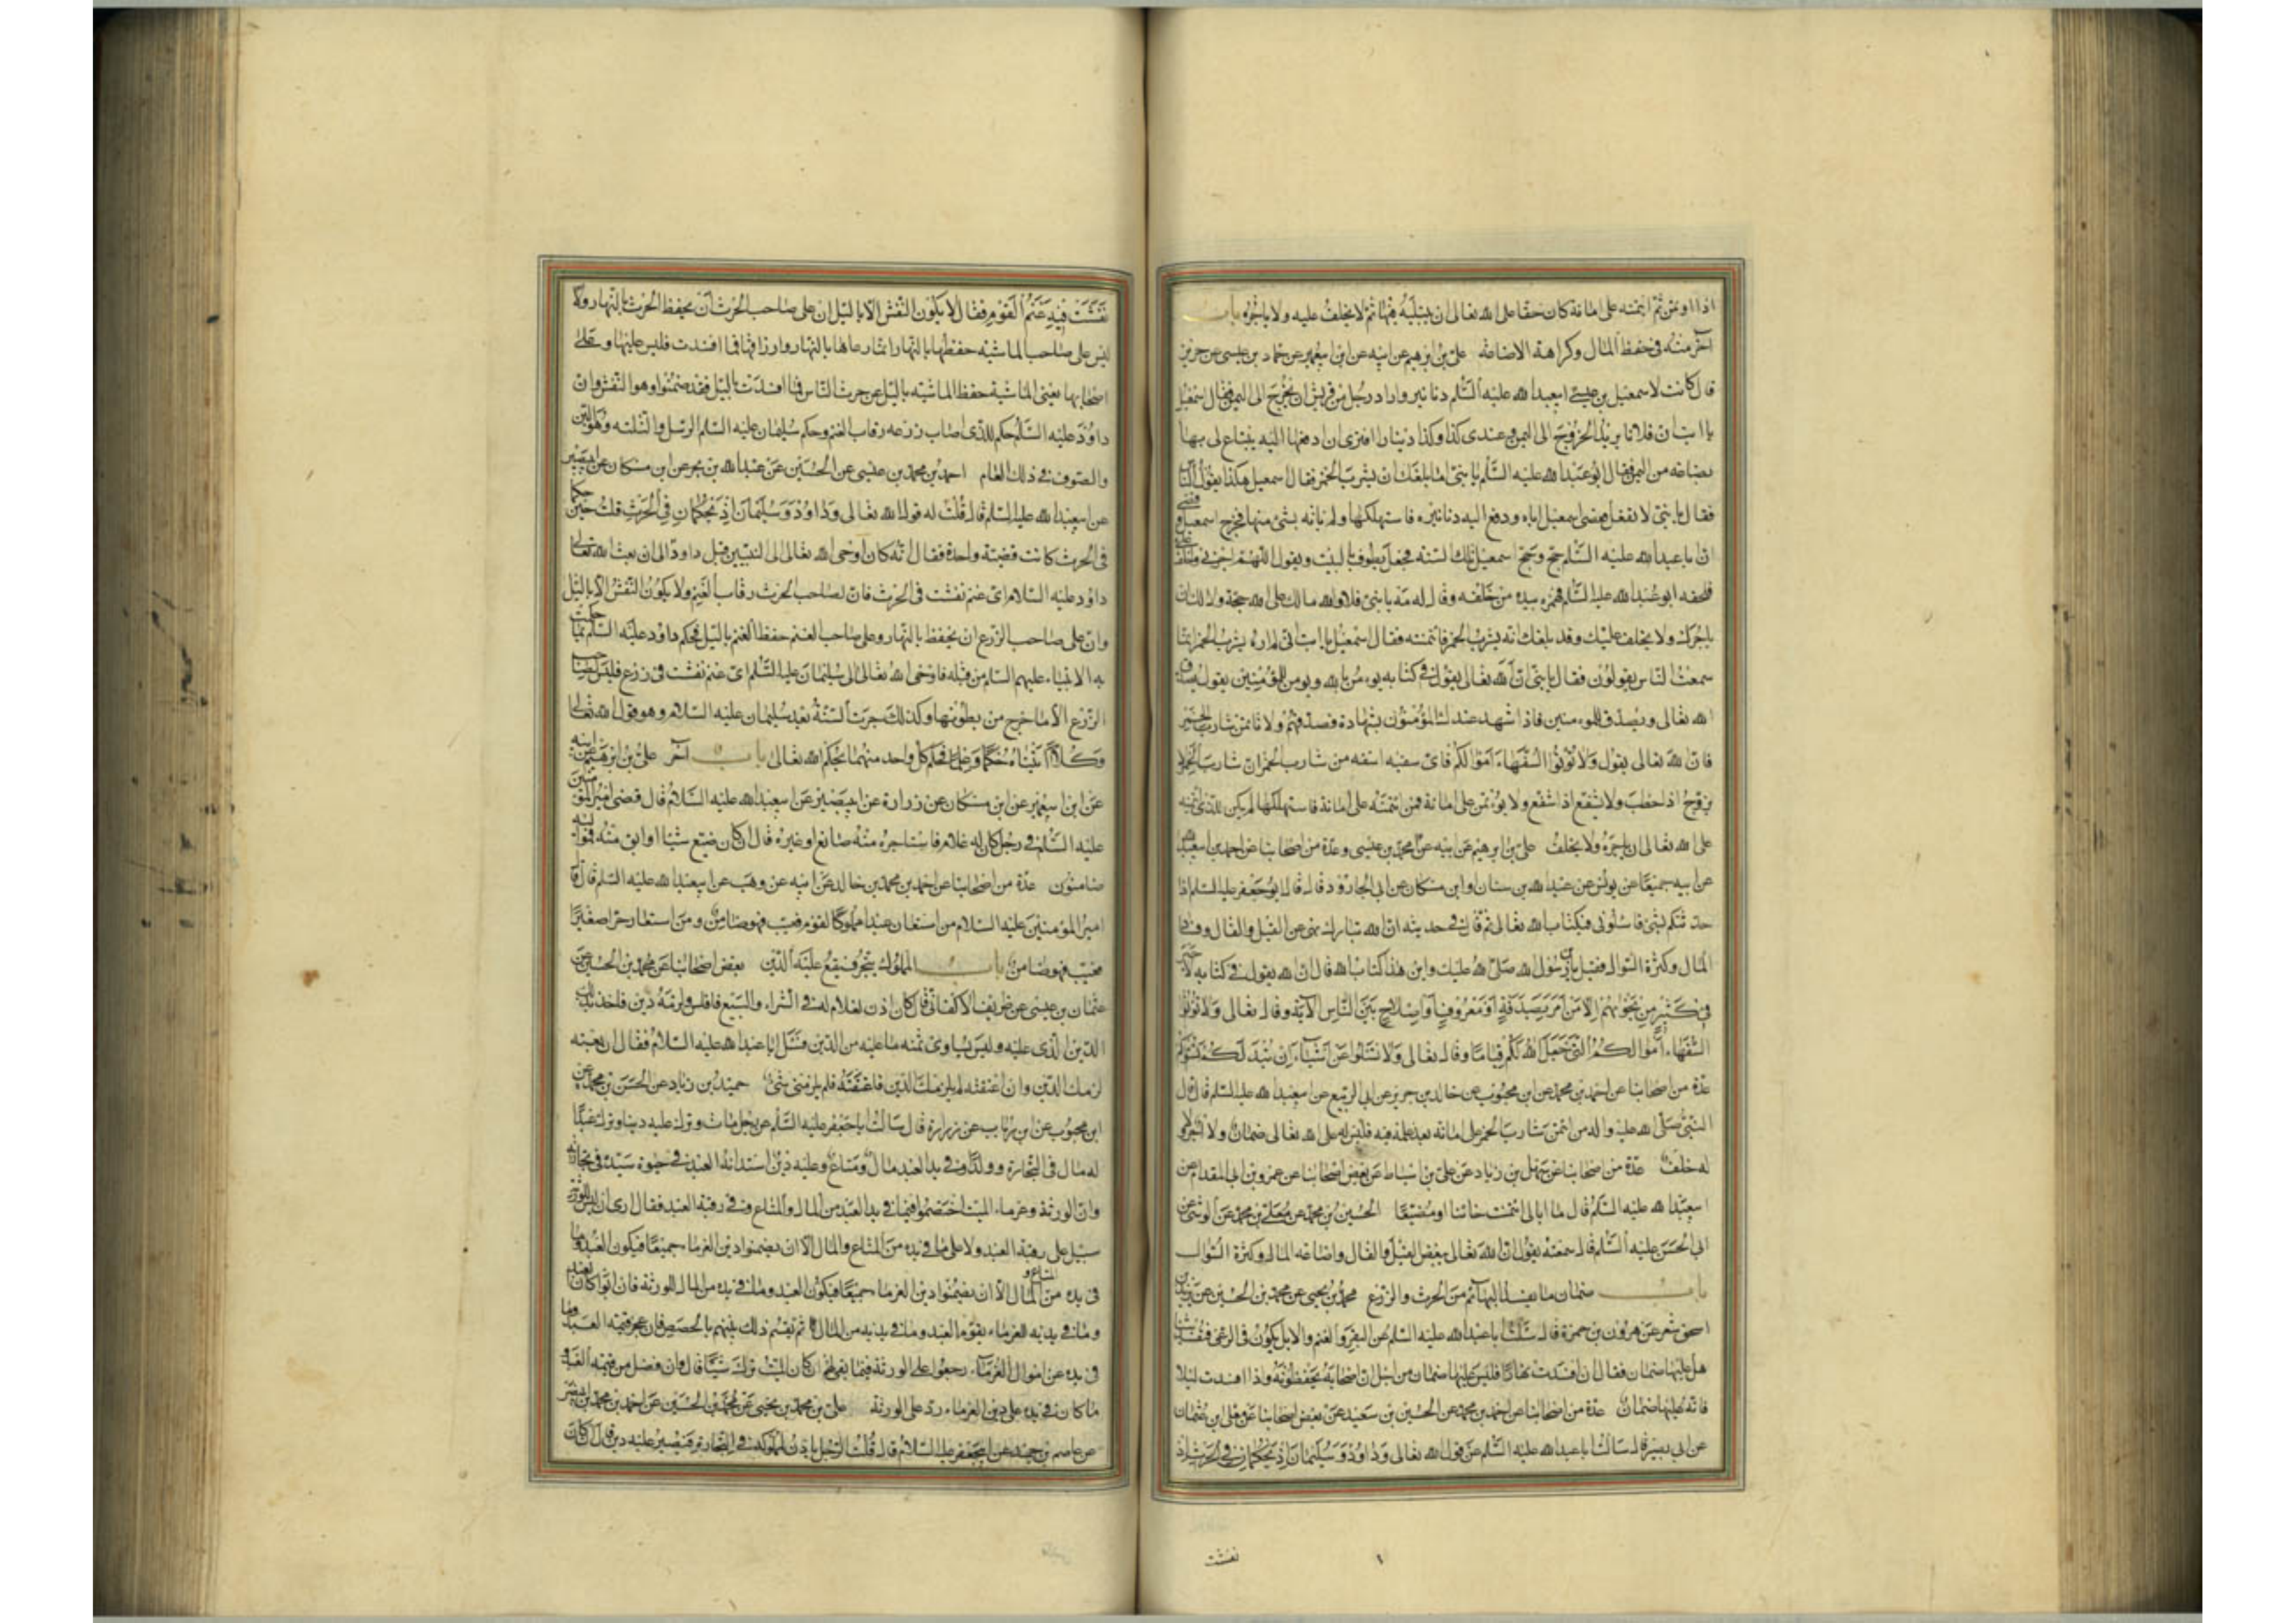 اذا اومن ثم ائتمنه على امانة كان حقا على الله تعالى ان يبتليه فيها ثم لا يخلف عليه ولا ياجره باب
آخر منه في حفظ المال وكراهة الاضاعة علي بن ابرهيم عن ابيه عن ابن ابي عمير عن حماد بن عيسى عن حريز
قال كانت لاسمعيل بن ابي عبد الله عليه السلم دنانير واراد رجل من قريش ان يخرج الى اليمن فقال اسمعيل
يا ابت ان فلانا يريد الخروج الى اليمن وعندي كذا وكذا دينارا افترى ان ادفعها اليه يبتاع لي بها
بضاعة من اليمن فقال ابو عبد الله عليه السلم يا بني اما بلغك انه يشرب الخمر فقال اسمعيل هكذا يقول الناس
فقال يا بني لا تفعل فعصى اسمعيل اباه ودفع اليه دنانيره فاستهلكها ولم ياته بشئ منها فخرج اسمعيل وقضى
ان ابا عبد الله عليه السلم حج وحج اسمعيل تلك السنة فجعل يطوف بالبيت ويقول اللهم اجرني واخلف علي
فلحقه ابو عبد الله عليه السلم فهمزه بيده من خلفه وقال له مه يا بني فلا والله مالك على الله حجة ولا لك ان
ياجرك ولا يخلف عليك وقد بلغك انه يشرب الخمر فائتمنته فقال اسمعيل يا ابت اني لم اره يشرب الخمر انما
سمعت الناس يقولون فقال يا بني ان الله تعالى يقول في كتابه يؤمن بالله ويؤمن للمؤمنين يقول يصدق
الله تعالى ويصدق للمؤمنين فاذا شهد عندك المؤمنون بشهادة فصدقهم ولا تأتمن شارب الخمر
فان الله تعالى يقول ولا تؤتوا السفهاء اموالكم فاى سفيه اسفه من شارب الخمر ان شارب الخمر لا
يزوج اذا خطب ولا يشفع اذا شفع ولا يؤتمن على امانة فمن ائتمنه على امانة فاستهلكها لم يكن للذي ائتمنه
على الله تعالى ان ياجره ولا يخلف علي بن ابرهيم عن ابيه عن محمد بن عيسى وعدة من اصحابنا عن احمد بن ابي عبد الله
عن ابيه جميعا عن يونس عن عبد الله بن سنان وابن مسكان عن ابي الجارود قال قال ابو جعفر عليه السلم اذا
حدثتكم بشئ فاسئلوني في كتاب الله تعالى ثم قال في حديثه ان الله تبارك نهى عن القيل والقال وفساد
المال وكثرة السؤال فقيل يا بن رسول الله صلى الله عليك واين هذا من كتاب الله قال ان الله يقول في كتابه لا خير
في كثير من نجواهم الا من امر بصدقة او معروف او اصلاح بين الناس الآية وقال تعالى ولا تؤتوا
السفهاء اموالكم التي جعل الله لكم قياما وقال تعالى ولا تسئلوا عن اشياء ان تبد لكم تسؤكم
عدة من اصحابنا عن احمد بن محمد عن ابن محبوب عن خالد بن جرير عن ابي الربيع عن ابي عبد الله عليه السلم قال قال
النبي صلى الله عليه واله من ائتمن شارب الخمر على امانة بعد علمه فيه فليس له على الله تعالى ضمان ولا اجر ولا
له خلف عدة من اصحابنا عن سهل بن زياد عن علي بن اسباط عن بعض اصحابنا عن عمرو بن ابي المقدام عن
ابي عبد الله عليه السلم قال ما ابالي ائتمنت خائنا او مضيعا الحسين بن محمد عن معلى بن محمد عن الوشاء عن
ابي الحسن عليه السلم قال سمعته يقول ان الله تعالى يبغض القيل والقال واضاعة المال وكثرة السؤال
باب ضمان ما يفسد البهائم من الحرث والزرع محمد بن يحيى عن محمد بن الحسين عن يزيد بن
اسحق شعر عن هرون بن حمزة قال سالت ابا عبد الله عليه السلم عن البقر والغنم والابل يكون في الرعي فتفسد شيئا
هل عليها ضمان فقال ان افسدت نهارا فليس عليها ضمان من اجل ان اصحابه يحفظونه واذا افسدت ليلا
فانه عليها ضمان عدة من اصحابنا عن احمد بن محمد عن الحسين بن سعيد عن بعض اصحابنا عن معلى بن عثمان
عن ابي بصير قال سالت ابا عبد الله عليه السلم عن قول الله تعالى وداود وسليمان اذ يحكمان في الحرث اذ
نفشت
نفشت فيه غنم القوم فقال لا يكون النفش الا بالليل ان على صاحب الحرث ان يحفظ الحرث بالنهار و
ليس على صاحب الماشية حفظها بالنهار انما رعاها بالنهار وارزاقها فما افسدت فليس عليها وعلى
اصحابها يعني الماشية حفظ الماشية بالليل عن حرث الناس فما افسدت بالليل فقد ضمنوا وهو النفش وان
داود عليه السلم حكم للذي اصاب زرعه رقاب الغنم وحكم سليمان عليه السلم الرسل والثلة وهو اللبن
والصوف في ذلك العام احمد بن محمد بن عيسى عن الحسين عن عبد الله بن بحر عن ابن مسكان عن ابي بصير
عن ابي عبد الله عليه السلم قال قلت له قول الله تعالى وداود وسليمان اذ يحكمان في الحرث قلت حين حكما
في الحرث كانت قضية واحدة فقال انه كان اوحى الله تعالى الى النبيين قبل داود الى ان بعث الله تعالى
داود عليه السلام اي غنم نفشت في الحرث فان لصاحب الحرث رقاب الغنم ولا يكون النفش الا بالليل
وان على صاحب الزرع ان يحفظ بالنهار وعلى صاحب الغنم حفظ الغنم بالليل فحكم داود عليه السلم بما حكمت
به الانبياء عليهم السلم من قبله فاوحى الله تعالى الى سليمان عليه السلم اي غنم نفشت في زرع فليس لصاحب
الزرع الا ما خرج من بطونها وكذلك جرت السنة بعد سليمان عليه السلام وهو قول الله تعالى
وكلا آتيناه حكما وعلما فحكم كل واحد منهما بحكم الله تعالى باب آخر علي بن ابرهيم عن ابيه
عن ابن ابي عمير عن ابن مسكان عن زرارة عن ابي بصير عن ابي عبد الله عليه السلام قال قضى امير المؤمنين
عليه السلم في رجل كان له غلام فاستاجره منه صانع او غيره قال ان كان ضيع شيئا او ابق منه فمواليه
ضامنون عدة من اصحابنا عن احمد بن محمد بن خالد عن ابيه عن وهب عن ابي عبد الله عليه السلم قال قال
امير المؤمنين عليه السلام من استعان عبدا مملوكا لقوم فعيب فهو ضامن ومن استعار حرا صغيرا
فعيب فهو ضامن باب المملوك يتجر فيقع عليه الدين بعض اصحابنا عن محمد بن الحسين عن
عثمان بن عيسى عن ظريف الاكفاني قال كان اذن لغلام له في الشراء والبيع فافلس ولزمه دين فاخذ بذلك
الدين الذي عليه وليس يساوي ثمنه ما عليه من الدين فسئل ابا عبد الله عليه السلام فقال ان بعته
لزمك الدين وان اعتقته لم يلزمك الدين فاعتقته فلم يلزمني شئ حميد بن زياد عن الحسن بن محمد عن
ابن محبوب عن ابن رئاب عن زرارة قال سالت ابا جعفر عليه السلم عن رجل مات وترك عليه دينا وترك عبدا
له مال في التجارة وولدا وفي يد العبد مال ومتاع وعليه دين استدانه العبد في حيوة سيده في تجارته
وان الورثة وغرماء الميت اختصموا فيما في يد العبد من المال والمتاع وفي رقبة العبد فقال ارى ان ليس للورثة
سبيل على رقبة العبد ولا على ما في يده من المتاع والمال الا ان يضمنوا دين الغرماء جميعا فيكون العبد وما
في يده من المال الا ان يضمنوا دين الغرماء جميعا فيكون العبد وما في يده من المال للورثة فان ابوا كان العبد
وما في يديه للغرماء يقوم العبد وما في يديه من المال ثم يقسم ذلك بينهم بالحصص فان عجز قيمة العبد وما
في يده عن اموال الغرماء رجعوا على الورثة فيما بقي لهم ان كان الميت ترك شيئا قال وان فضل من قيمة العبد و
ما كان في يده على دين الغرماء رد على الورثة علي بن محمد بن يحيى عن محمد بن الحسين عن احمد بن محمد بن ابي نصر
عن عاصم بن حميد عن ابي جعفر عليه السلام قال قلت الرجل ياذن لمملوكه في التجارة فيصير عليه دين قال ان كان